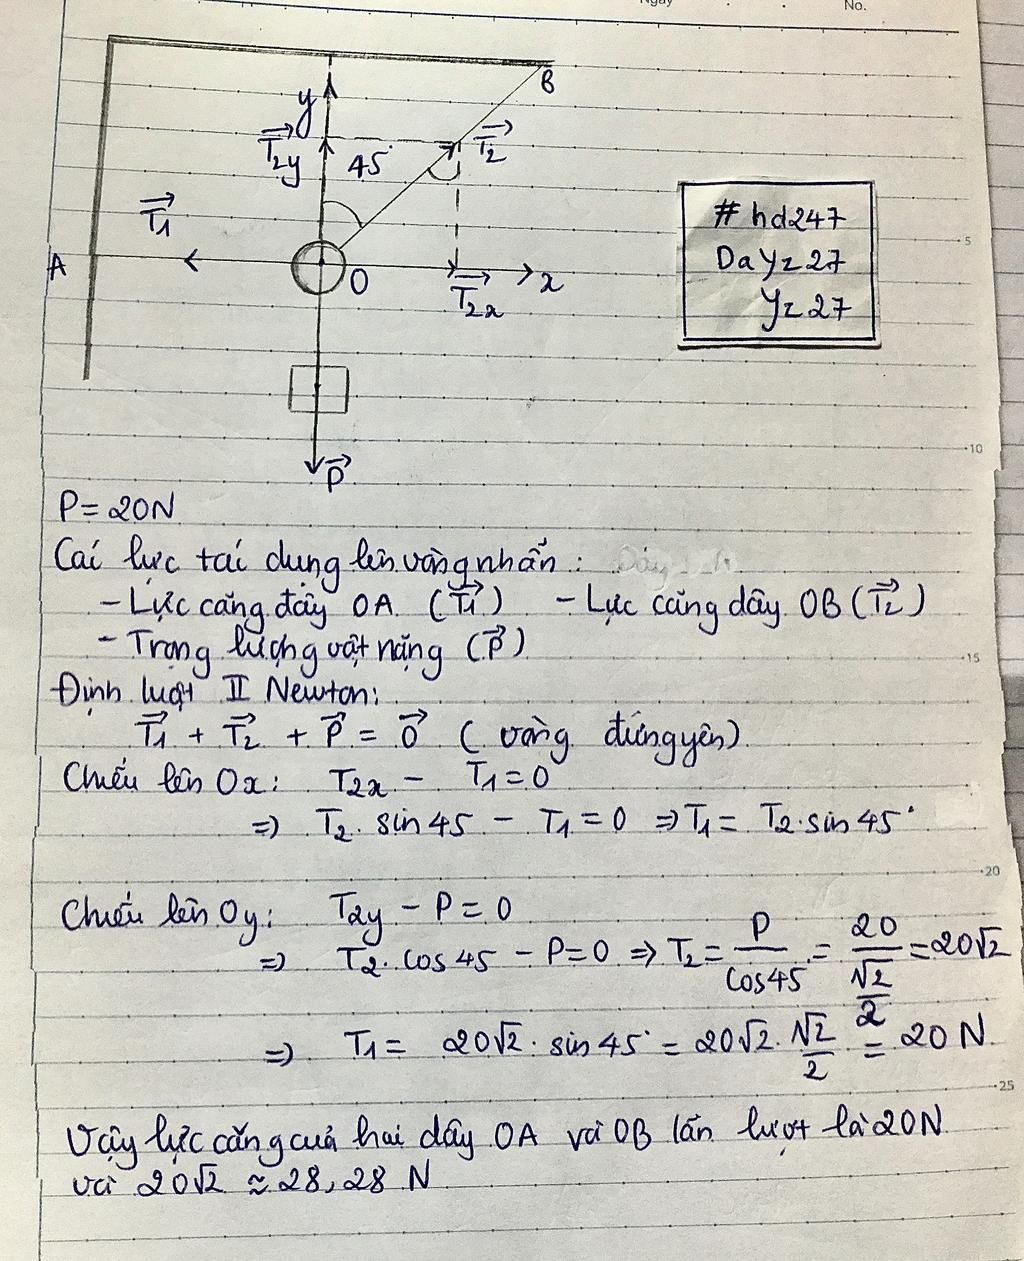 Ngày
No.
y
B
T₂y
45°
T₂
T₁
A
O
x
T₂x
P
# hd247
Dayz27
yz27
5
10
15
20
25
P = 20N
Cái lực tái dụng lên vòng nhẫn:
- Lực căng dây OA (T₁) - Lực căng dây OB (T₂)
- Trọng lượng vật nặng (P)
Định luật II Newton:
T₁ + T₂ + P = 0 ( vòng đứng yên)
Chiếu lên Ox: T₂x - T₁ = 0
=> T₂. sin 45 - T₁ = 0 => T₁ = T₂.sin 45°
Chiếu lên Oy: T₂y - P = 0
=> T₂. cos 45 - P = 0 => T₂ = P/cos45 = 20/(√2/2) = 20√2
=> T₁ = 20√2 . sin 45° = 20√2. √2/2 = 20 N
Vậy lực căng của hai dây OA và OB lần lượt là 20N
và 20√2 ≈ 28,28 N